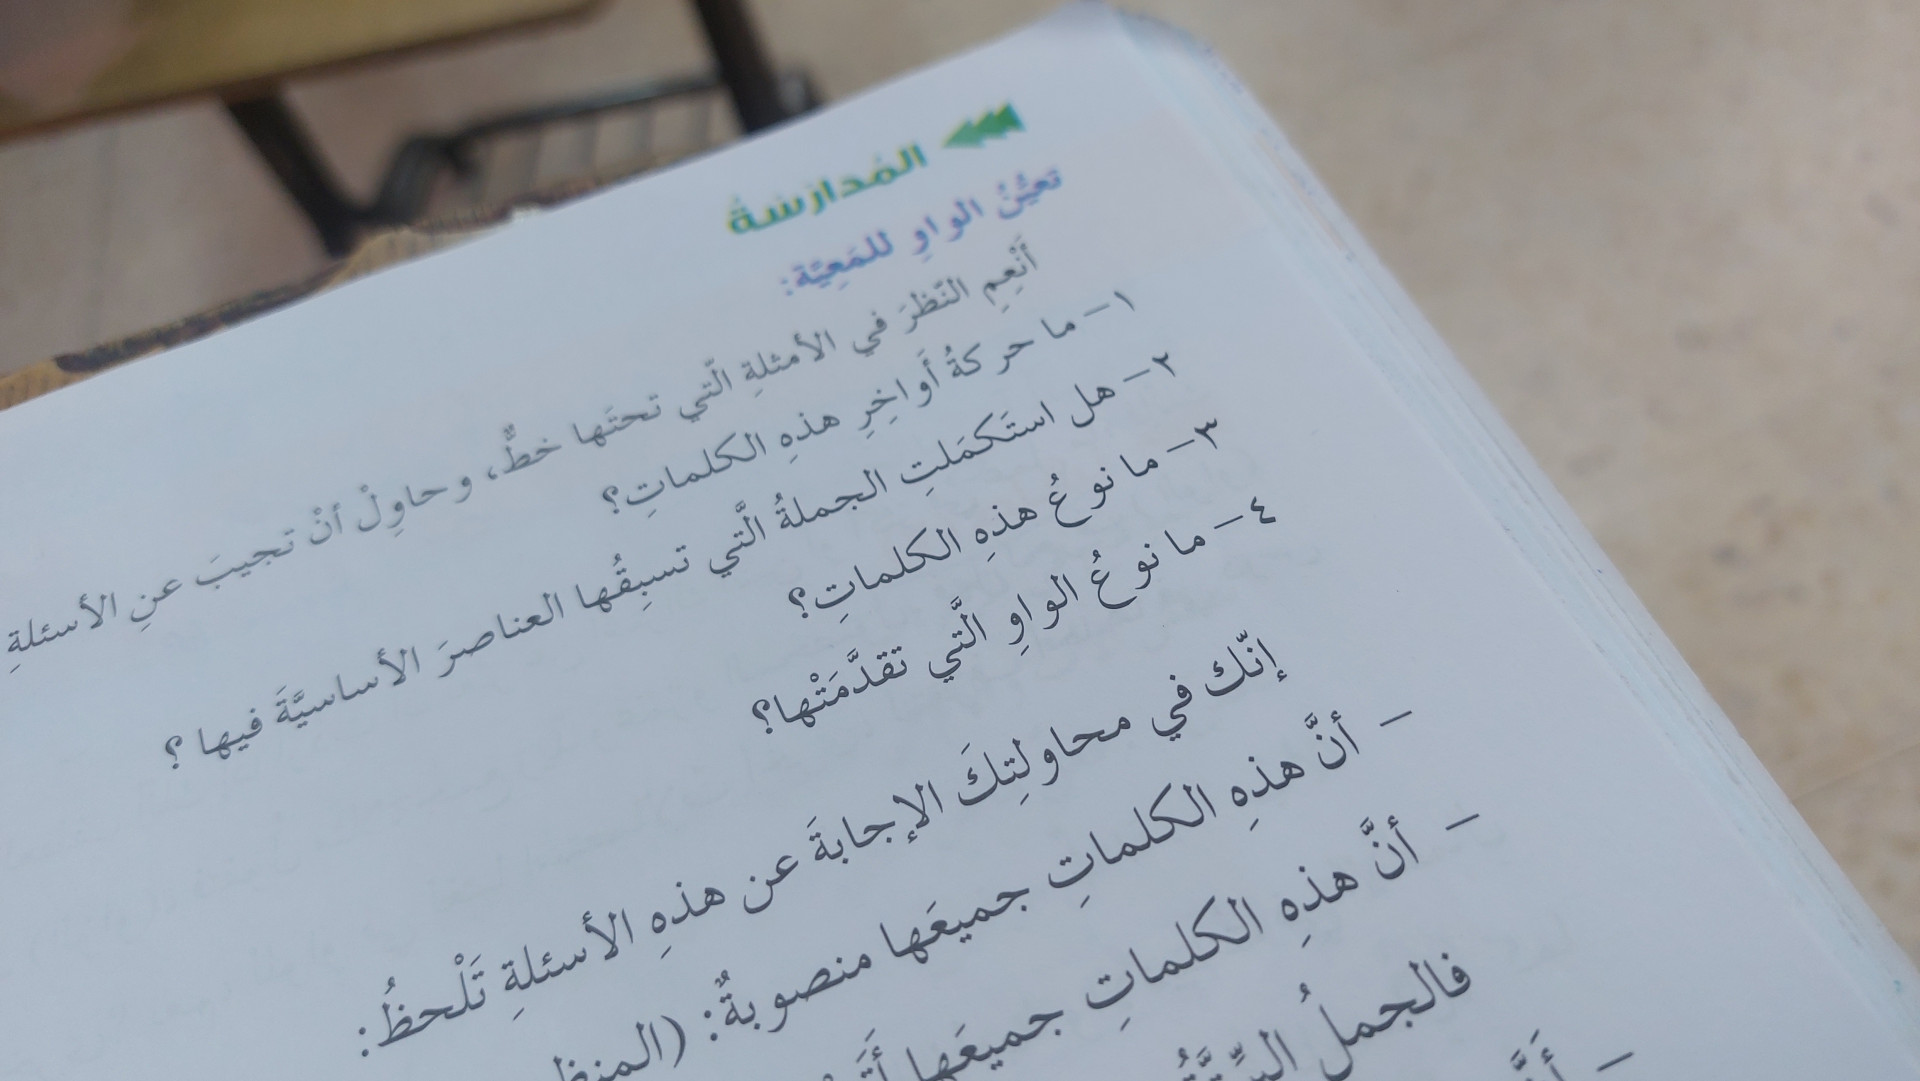 المُدارَسَةُ
تعيُّنُ الواوِ للمَعِيَّة:
أَنْعِمِ النّظرَ في الأمثلةِ الّتي تحتَها خطٌّ، وحاوِلْ أنْ تجيبَ عنِ الأسئلةِ
١- ما حركةُ أَواخِرِ هذهِ الكلماتِ؟
٢- هل استَكمَلتِ الجملةُ الَّتي تسبِقُها العناصرَ الأساسيَّةَ فيها ؟
٣- ما نوعُ هذهِ الكلماتِ؟
٤- ما نوعُ الواوِ الَّتي تقدَّمَتْها؟
إنّك في محاولتِكَ الإجابةَ عن هذهِ الأسئلةِ تَلْحظُ:
- أنَّ هذهِ الكلماتِ جميعَها منصوبةٌ: (
- أنَّ هذهِ الكلماتِ جميعَها
فالجملُ